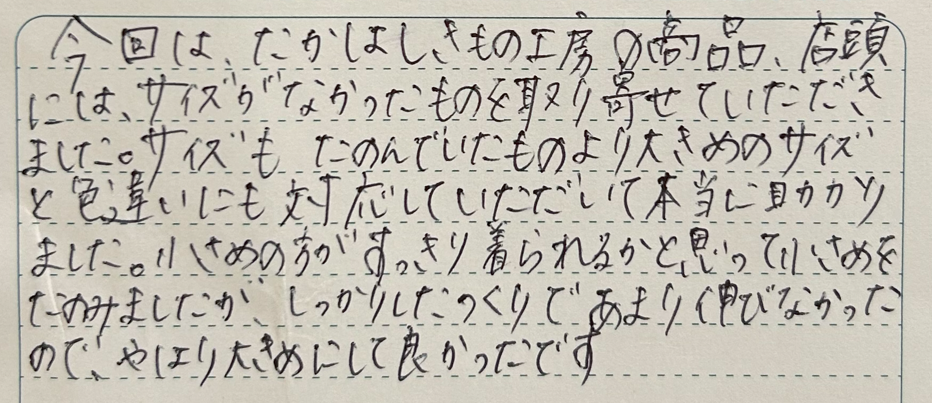 今回は、たかはしきもの工房の商品、店頭
には、サイズがなかったものを取り寄せていただき
ました。サイズも たのんでいたものより大きめのサイズ
と色違いにも対応していただいて本当に助かり
ました。小さめの方がすっきり着られるかと思って小さめを
たのみましたが、しっかりしたつくりで あまり伸びなかった
ので、やはり大きめにして良かったです